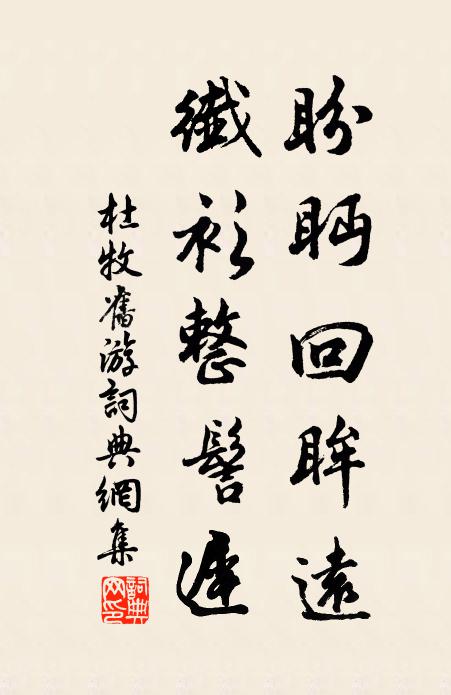 盼眄回眸遠
纖衫整髻遲
杜牧舊游詞典網集
詞典
网印